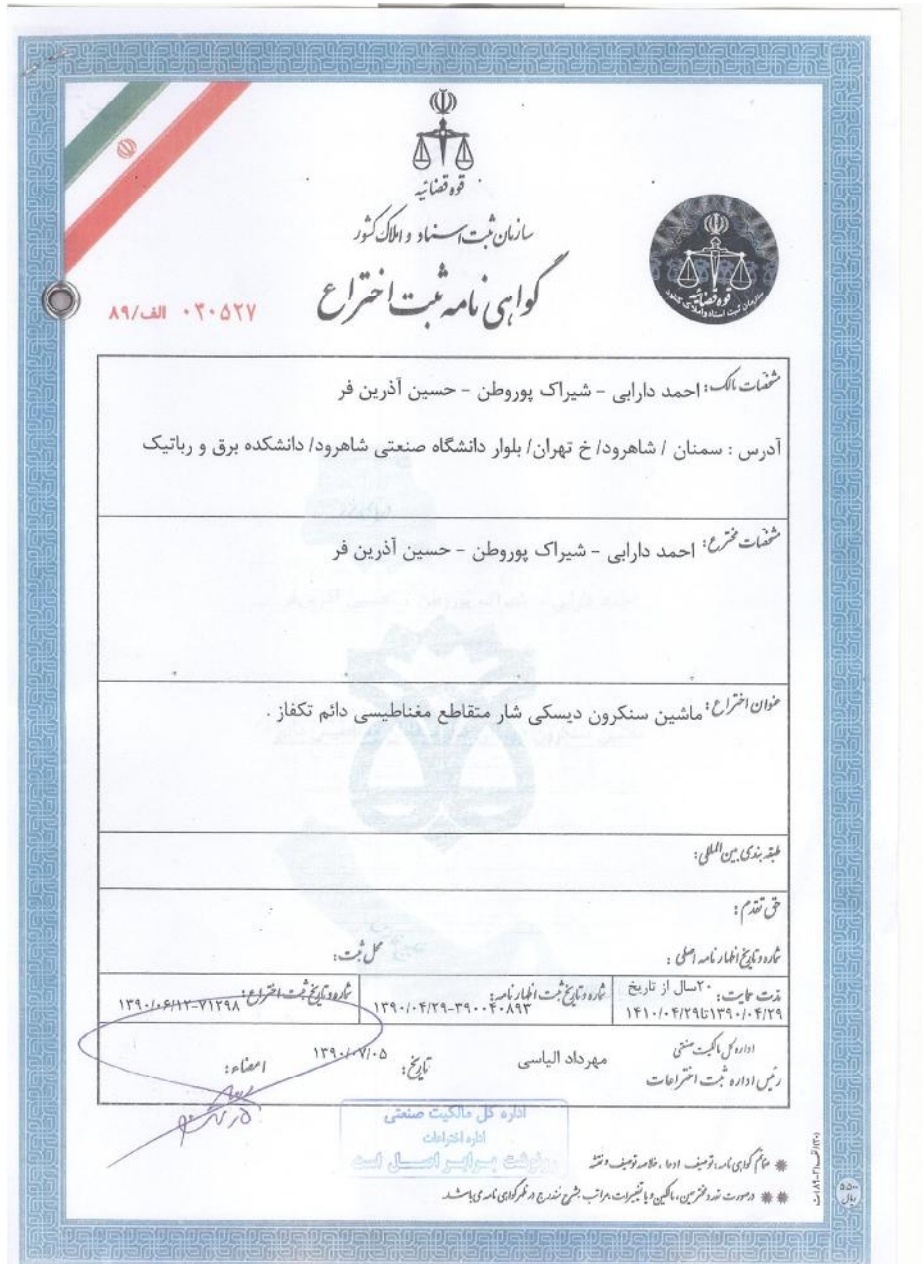 قوه قضائیه
سازمان ثبت اسناد و املاک کشور
گواهی نامه ثبت اختراع
۰۳۰۵۲۷ الف/۸۹
قوه قضائیه
سازمان ثبت اسناد و املاک کشور
مشخصات مالک: احمد دارابی - شیراک پوروطن - حسین آذرین فر
آدرس : سمنان / شاهرود/ خ تهران/ بلوار دانشگاه صنعتی شاهرود/ دانشکده برق و رباتیک
مشخصات مخترع: احمد دارابی - شیراک پوروطن - حسین آذرین فر
عنوان اختراع: ماشین سنکرون دیسکی شار متقاطع مغناطیسی دائم تکفاز .
طبقه بندی بین المللی:
حق تقدم:
شماره و تاریخ اظهار نامه اصلی :
محل ثبت:
مدت حمایت: ۲۰سال از تاریخ
۱۳۹۰/۰۴/۲۹تا۱۴۱۰/۰۴/۲۹
شماره و تاریخ ثبت اظهارنامه:
۱۳۹۰/۰۴/۲۹-۳۹۰۰۴۰۸۹۳
شماره و تاریخ ثبت اختراع:
۱۳۹۰/۰۶/۱۲-۷۱۲۹۸
اداره کل مالکیت صنعتی
رئیس اداره ثبت اختراعات
مهرداد الیاسی
تاریخ: ۱۳۹۰/۰۷/۰۵
امضاء:
اداره کل مالکیت صنعتی
اداره اختراعات
رونوشت برابر اصل است
ضمائم گواهی نامه: توصیف، ادعا، خلاصه توصیف و نقشه
درصورت تعدد مخترعین، مالکین و یا تغییرات، مراتب بشرح مندرج در ظهر گواهی نامه می باشد.
۵۵۰۰ ریال